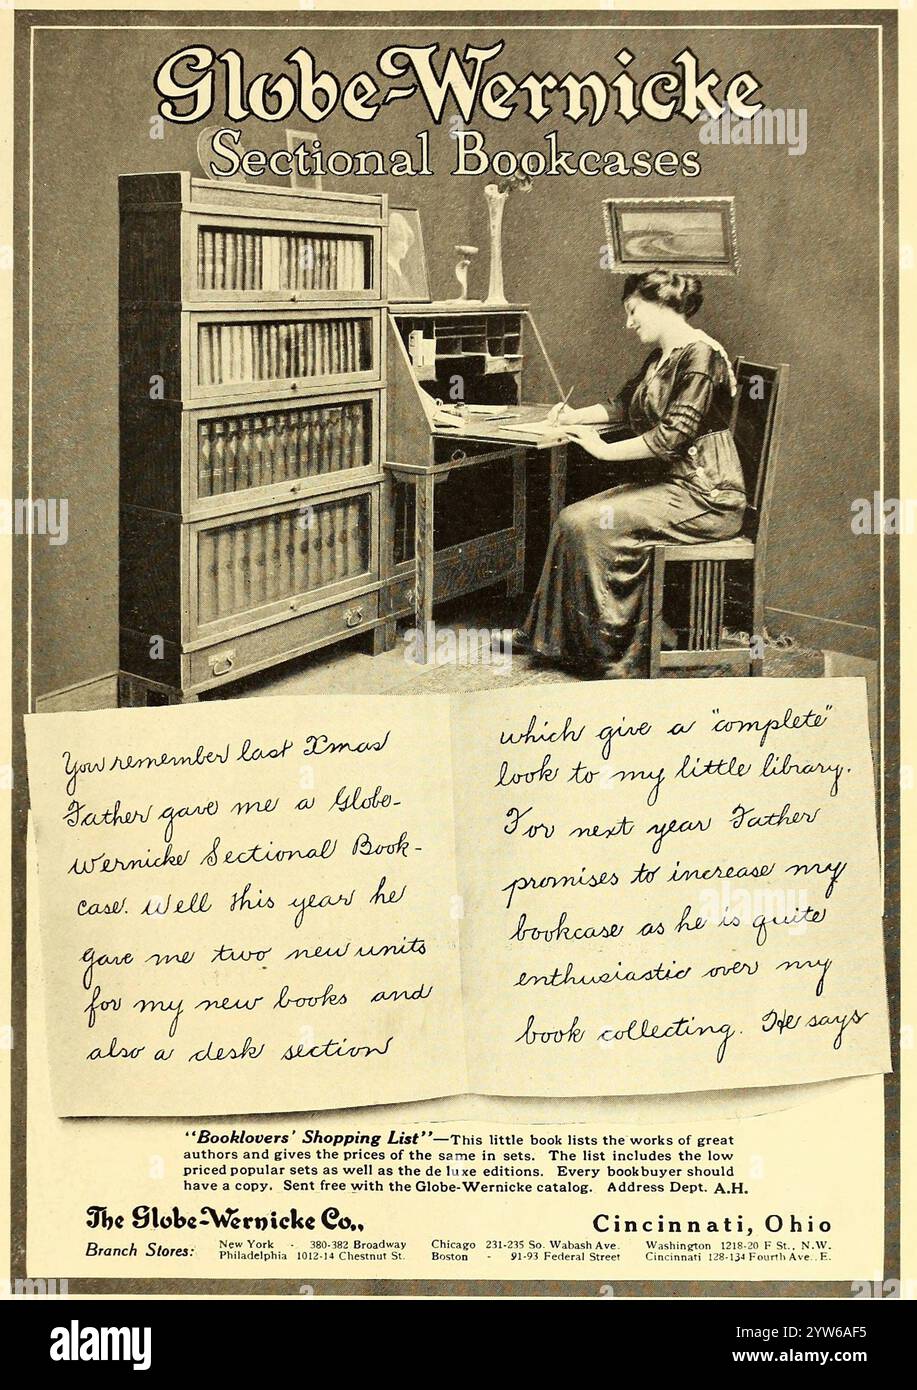 Globe-Wernicke
Sectional Bookcases
You remember last Xmas
Father gave me a Globe-
Wernicke Sectional Book-
case. Well this year he
gave me two new units
for my new books and
also a desk section
which give a "complete"
look to my little library.
For next year Father
promises to increase my
bookcase as he is quite
enthusiastic over my
book collecting. He says
"Booklovers' Shopping List"—This little book lists the works of great
authors and gives the prices of the same in sets. The list includes the low
priced popular sets as well as the de luxe editions. Every bookbuyer should
have a copy. Sent free with the Globe-Wernicke catalog. Address Dept. A.H.
The Globe-Wernicke Co., Cincinnati, Ohio
Branch Stores: New York - 380-382 Broadway Chicago 231-235 So. Wabash Ave. Washington 1218-20 F St., N.W.
Philadelphia 1012-14 Chestnut St. Boston - 91-93 Federal Street Cincinnati 128-134 Fourth Ave., E.
alamy
alamy
alamy
alamy
alamy
Image ID: 2YW6AF5
www.alamy.com